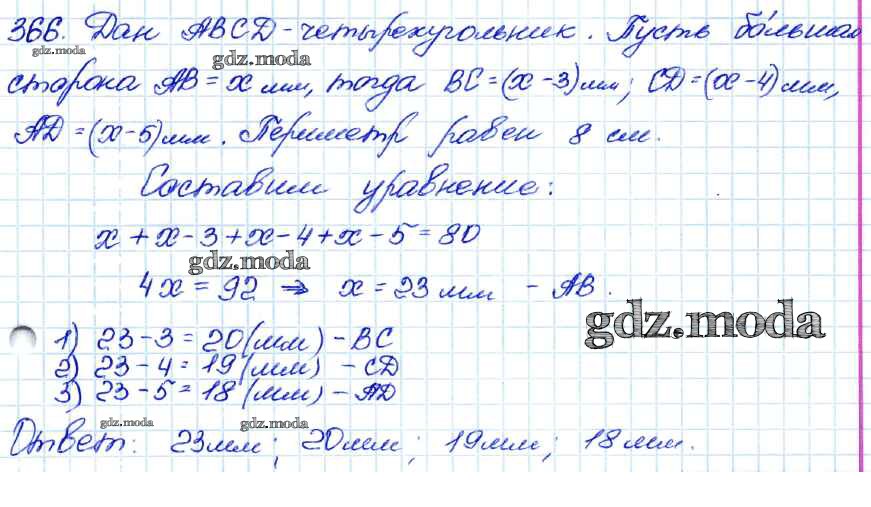 366. Дан ABCD - четырехугольник. Пусть большая
gdz.moda
gdz.moda
сторона AB = x мм, тогда BC = (x - 3) мм; CD = (x - 4) мм,
AD = (x - 5) мм. Периметр равен 8 см.
Составим уравнение:
x + x - 3 + x - 4 + x - 5 = 80
gdz.moda
4x = 92 ⇒ x = 23 мм - AB.
gdz.moda
1) 23 - 3 = 20 (мм) - BC
2) 23 - 4 = 19 (мм) - CD
3) 23 - 5 = 18 (мм) - AD
gdz.moda
gdz.moda
Ответ: 23 мм; 20 мм; 19 мм; 18 мм.